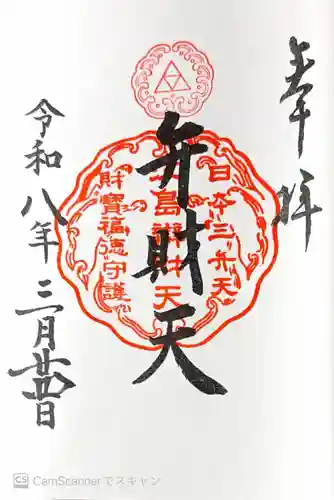 奉拝
日本三弁天
弁財天
島辯財天
財寶福徳守護
令和八年三月廿四日
CS CamScannerでスキャン